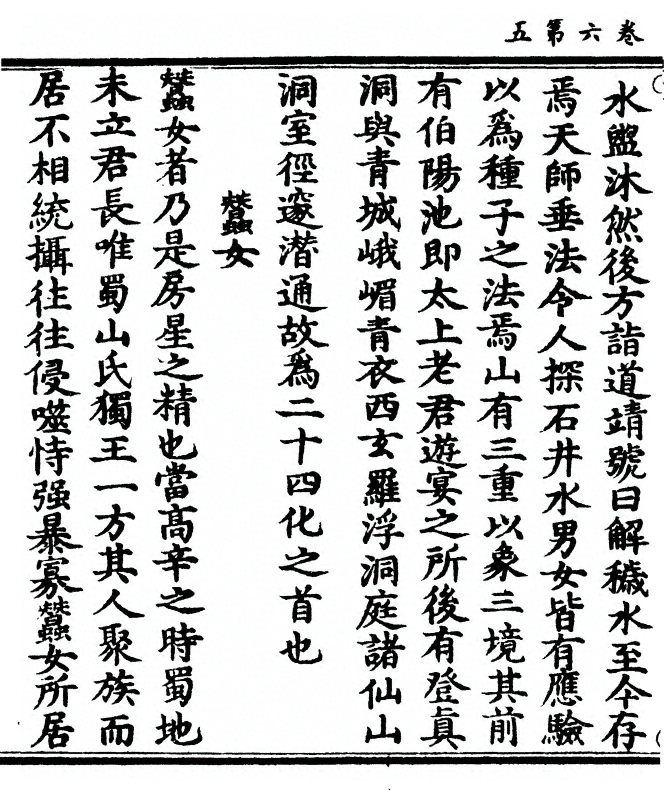 卷六第五
水盥沐然後方詣道靖號曰解穢水至今存
焉天師垂法令人探石井水男女皆有應驗
以爲種子之法焉山有三重以象三境其前
有伯陽池即太上老君遊宴之所後有登眞
洞與青城峨嵋青衣西玄羅浮洞庭諸仙山
洞室徑邃潛通故爲二十四化之首也
蠶女
蠶女者乃是房星之精也當高辛之時蜀地
未立君長唯蜀山氏獨王一方其人聚族而
居不相統攝往往侵噬恃强暴寡蠶女所居